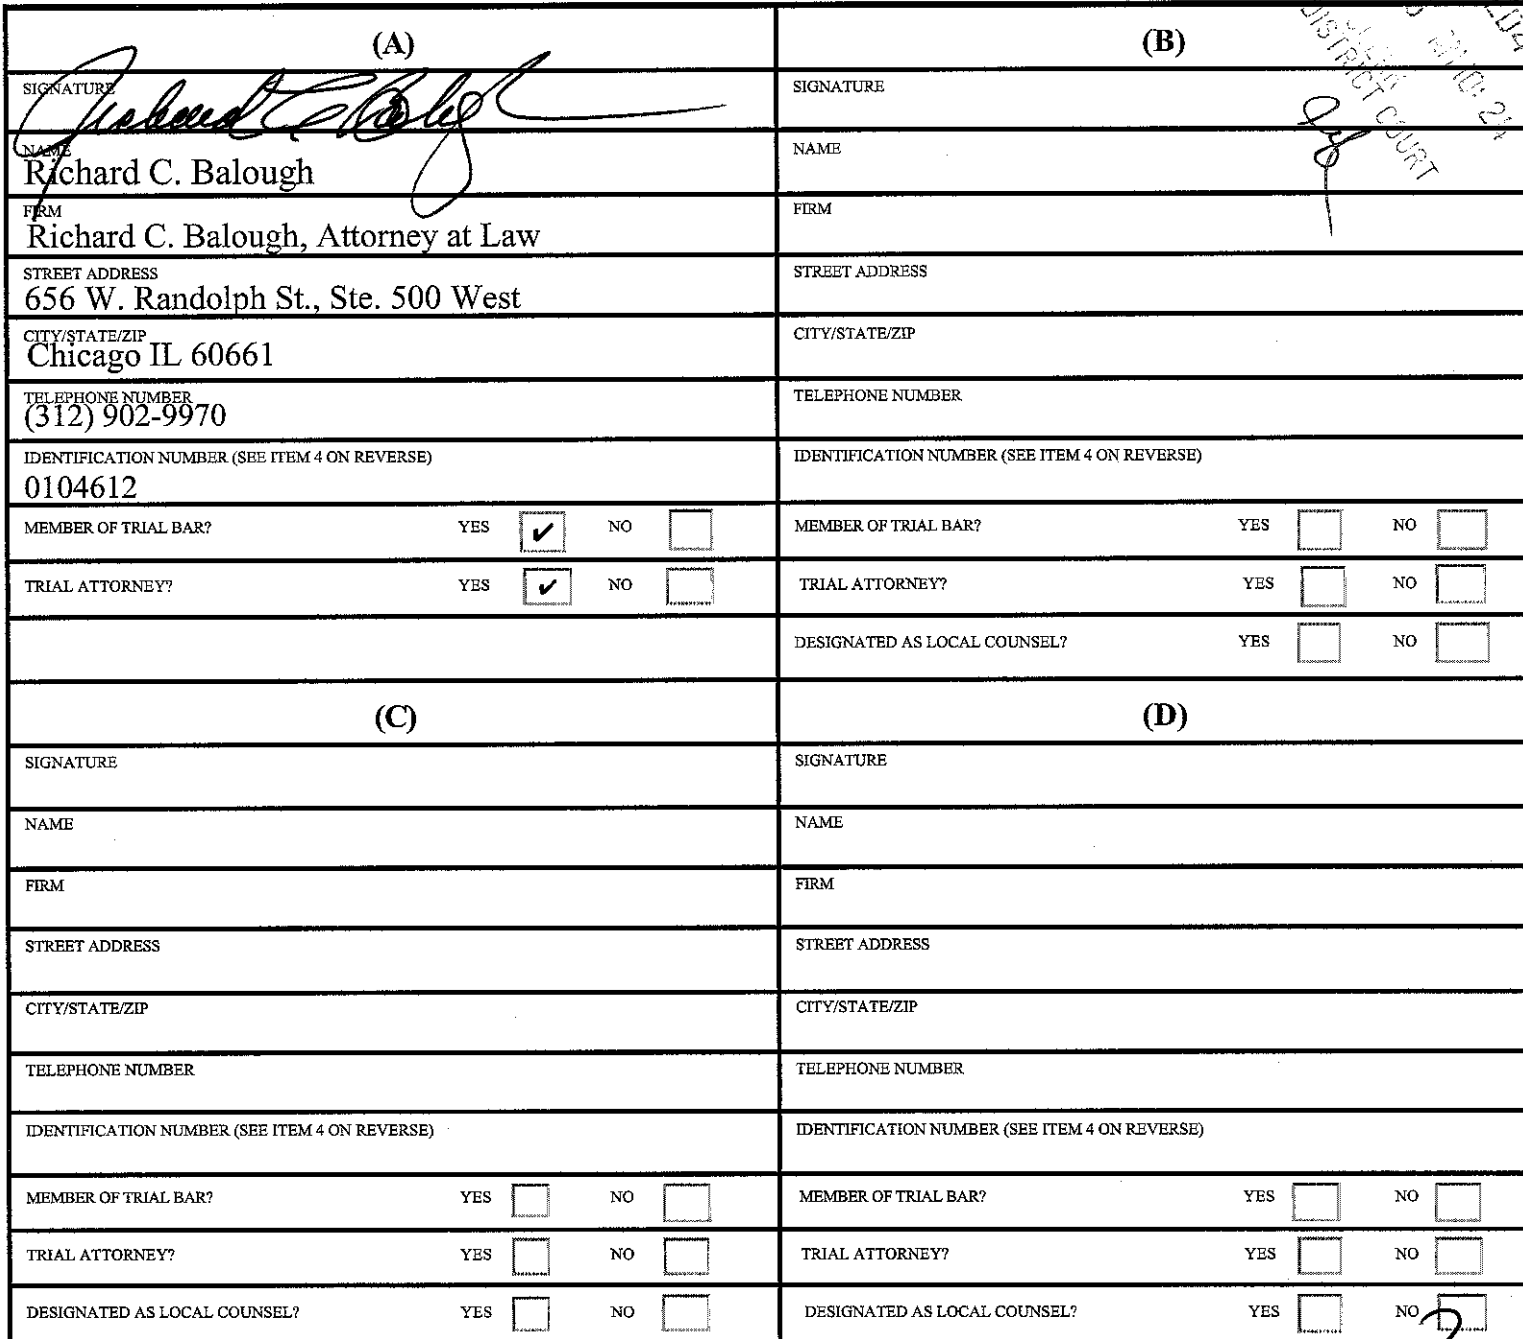 (A)
SIGNATURE
Richard C Balough
NAME
Richard C. Balough
FIRM
Richard C. Balough, Attorney at Law
STREET ADDRESS
656 W. Randolph St., Ste. 500 West
CITY/STATE/ZIP
Chicago IL 60661
TELEPHONE NUMBER
(312) 902-9970
IDENTIFICATION NUMBER (SEE ITEM 4 ON REVERSE)
0104612
MEMBER OF TRIAL BAR? YES ✔ NO
TRIAL ATTORNEY? YES ✔ NO
(B)
DISTRICT COURT
SIGNATURE
NAME
FIRM
STREET ADDRESS
CITY/STATE/ZIP
TELEPHONE NUMBER
IDENTIFICATION NUMBER (SEE ITEM 4 ON REVERSE)
MEMBER OF TRIAL BAR? YES NO
TRIAL ATTORNEY? YES NO
DESIGNATED AS LOCAL COUNSEL? YES NO
(C)
SIGNATURE
NAME
FIRM
STREET ADDRESS
CITY/STATE/ZIP
TELEPHONE NUMBER
IDENTIFICATION NUMBER (SEE ITEM 4 ON REVERSE)
MEMBER OF TRIAL BAR? YES NO
TRIAL ATTORNEY? YES NO
DESIGNATED AS LOCAL COUNSEL? YES NO
(D)
SIGNATURE
NAME
FIRM
STREET ADDRESS
CITY/STATE/ZIP
TELEPHONE NUMBER
IDENTIFICATION NUMBER (SEE ITEM 4 ON REVERSE)
MEMBER OF TRIAL BAR? YES NO
TRIAL ATTORNEY? YES NO
DESIGNATED AS LOCAL COUNSEL? YES NO